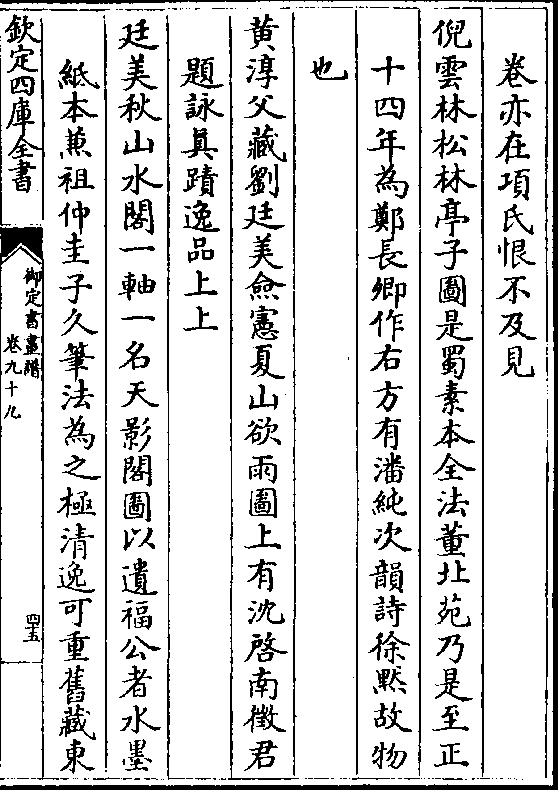 卷亦在項氏恨不及見
倪雲林松林亭子圖是蜀素本全法董北苑乃是至正
十四年為鄭長卿作右方有潘純次韻詩徐黙故物
也
黄淳父藏劉廷美僉憲夏山欲雨圖上有沈啓南徵君
題詠真蹟逸品上上
廷美秋山水閣一軸一名天影閣圖以遺福公者水墨
紙本兼祖仲圭子久筆法為之極清逸可重舊藏東
欽定四庫全書
御定書畫譜
卷九十九
四十五